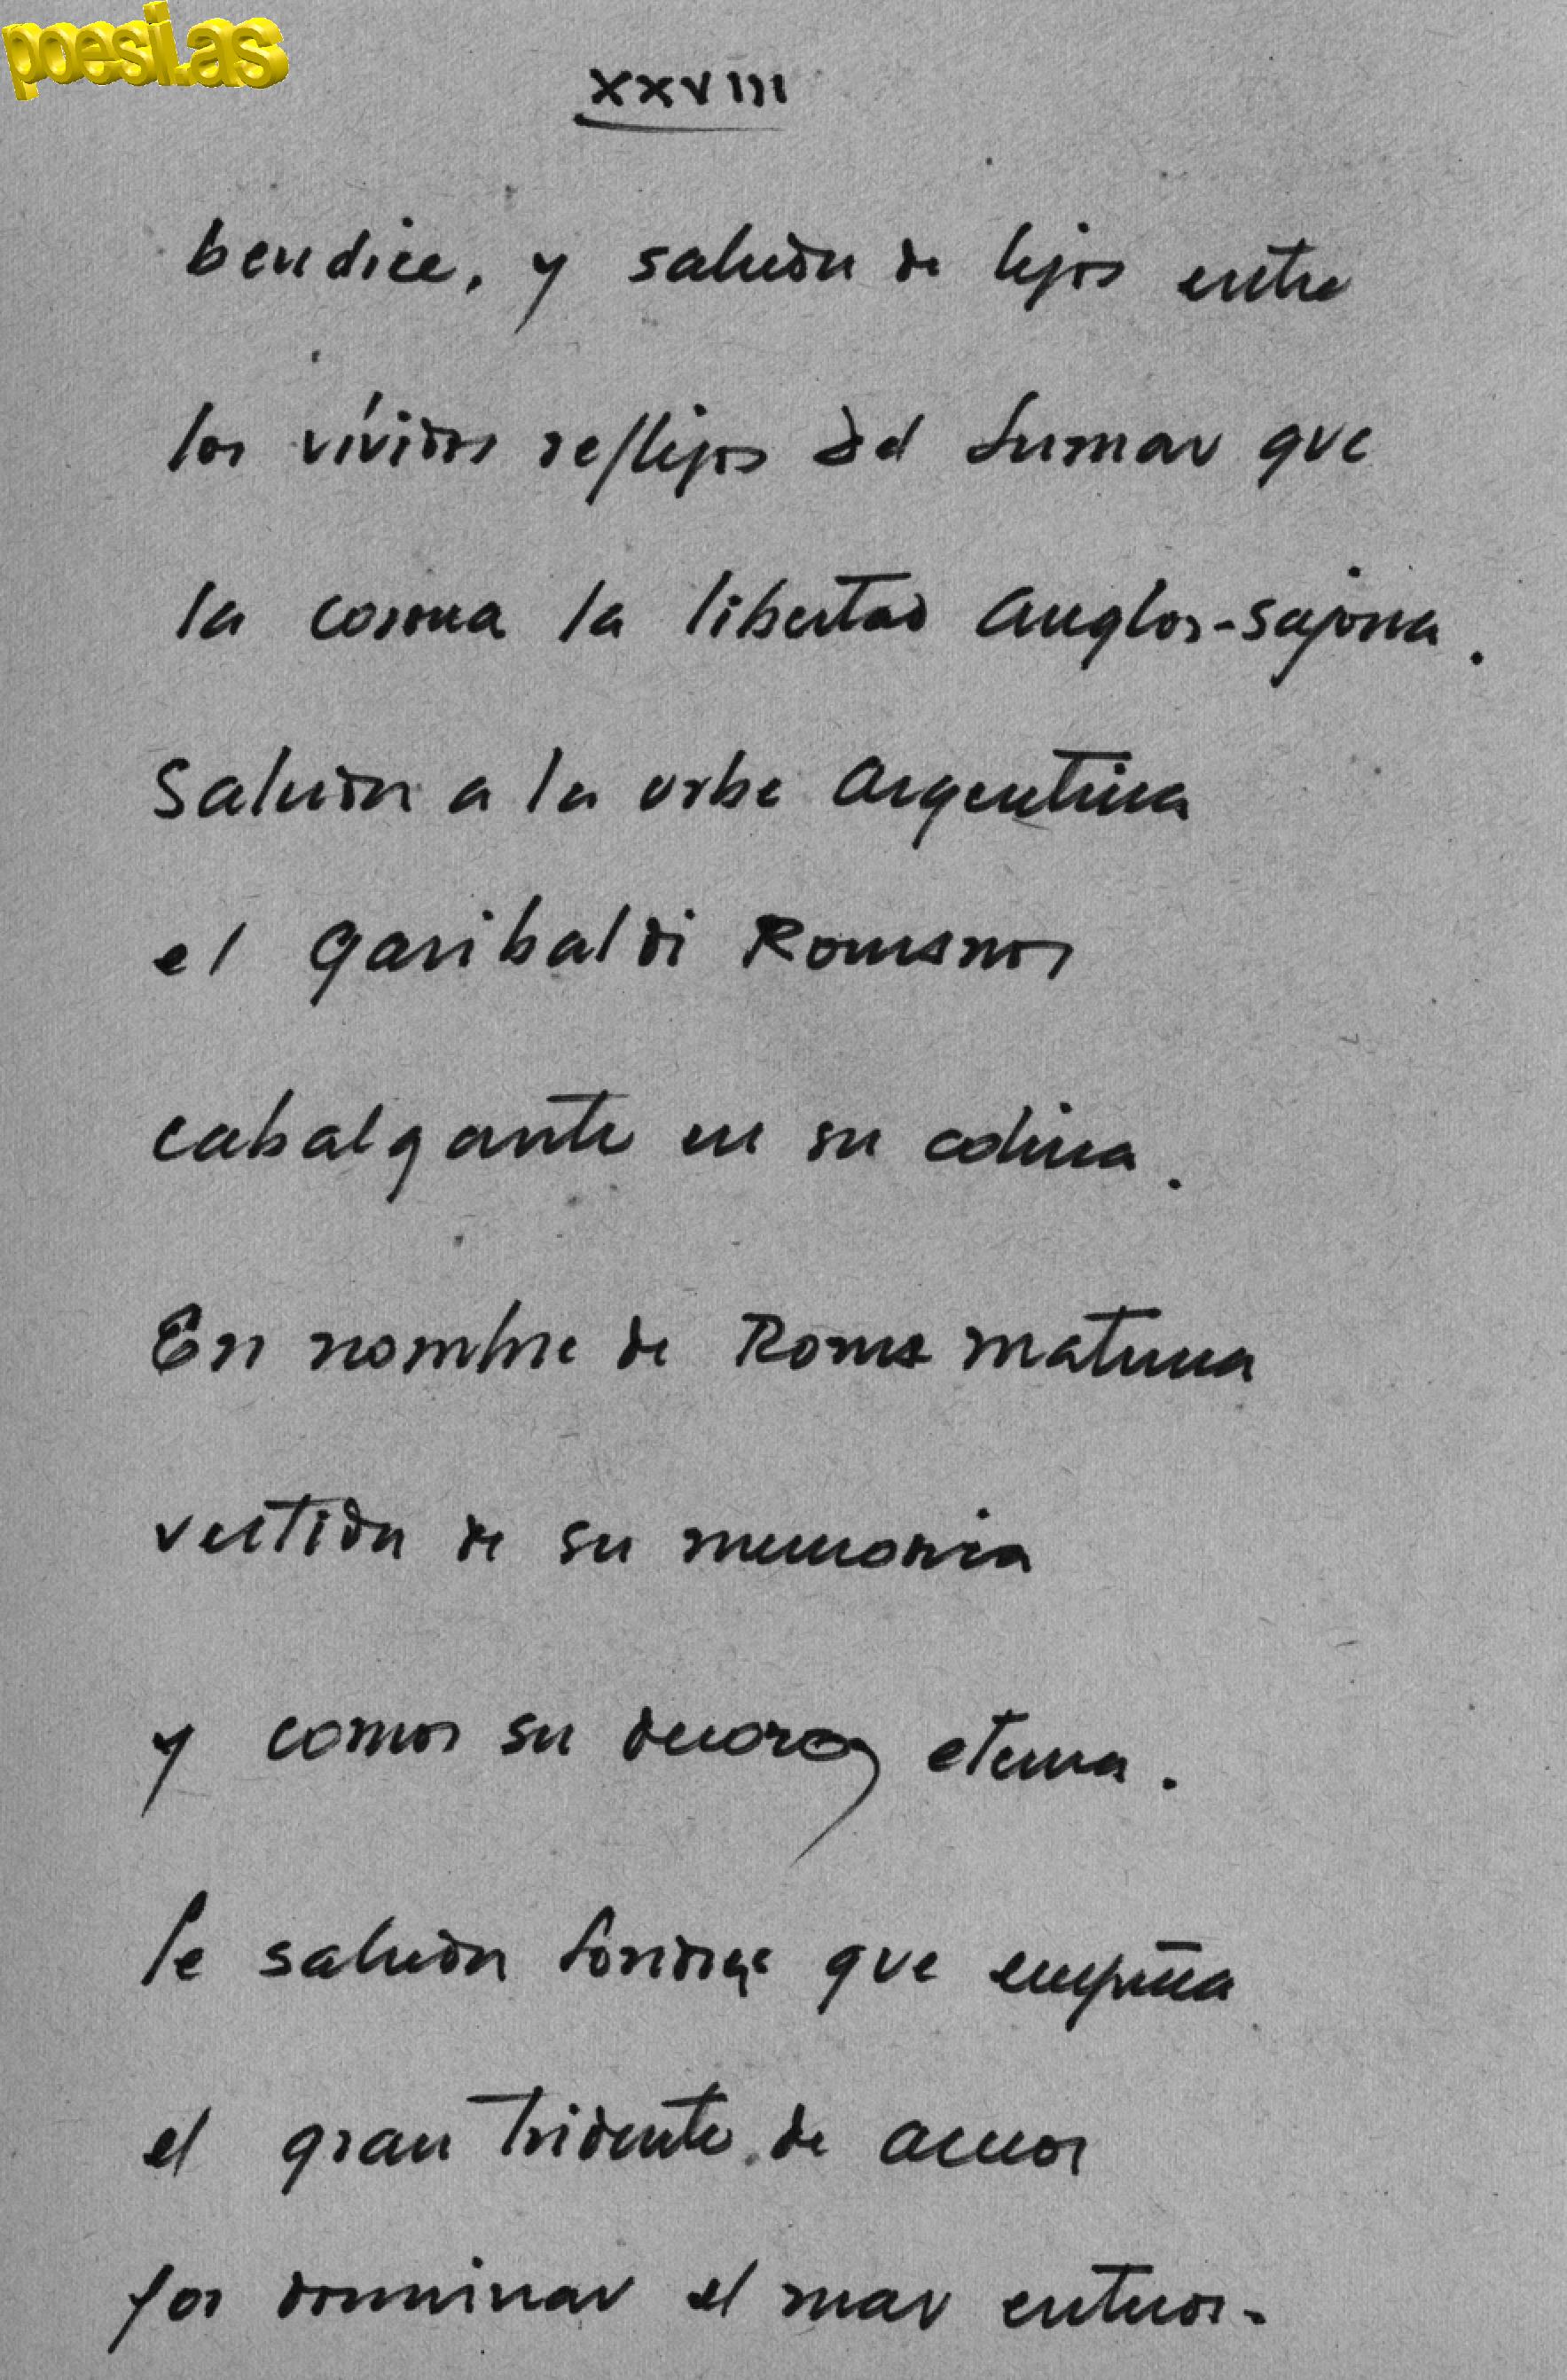 poesi.as
XXVIII
bendice, y saluda de lejos entre
los vívidos reflejos del lumar que
la corona la libertad Anglo-sajona.
Saluda a la urbe Argentina
el Garibaldi Romano
cabalgante en su colina.
En nombre de Roma materna
vestida de su memoria
y como su decoro, eterna.
Le saluda Londres que empuña
el gran tridente de acero
por dominar el mar entero.